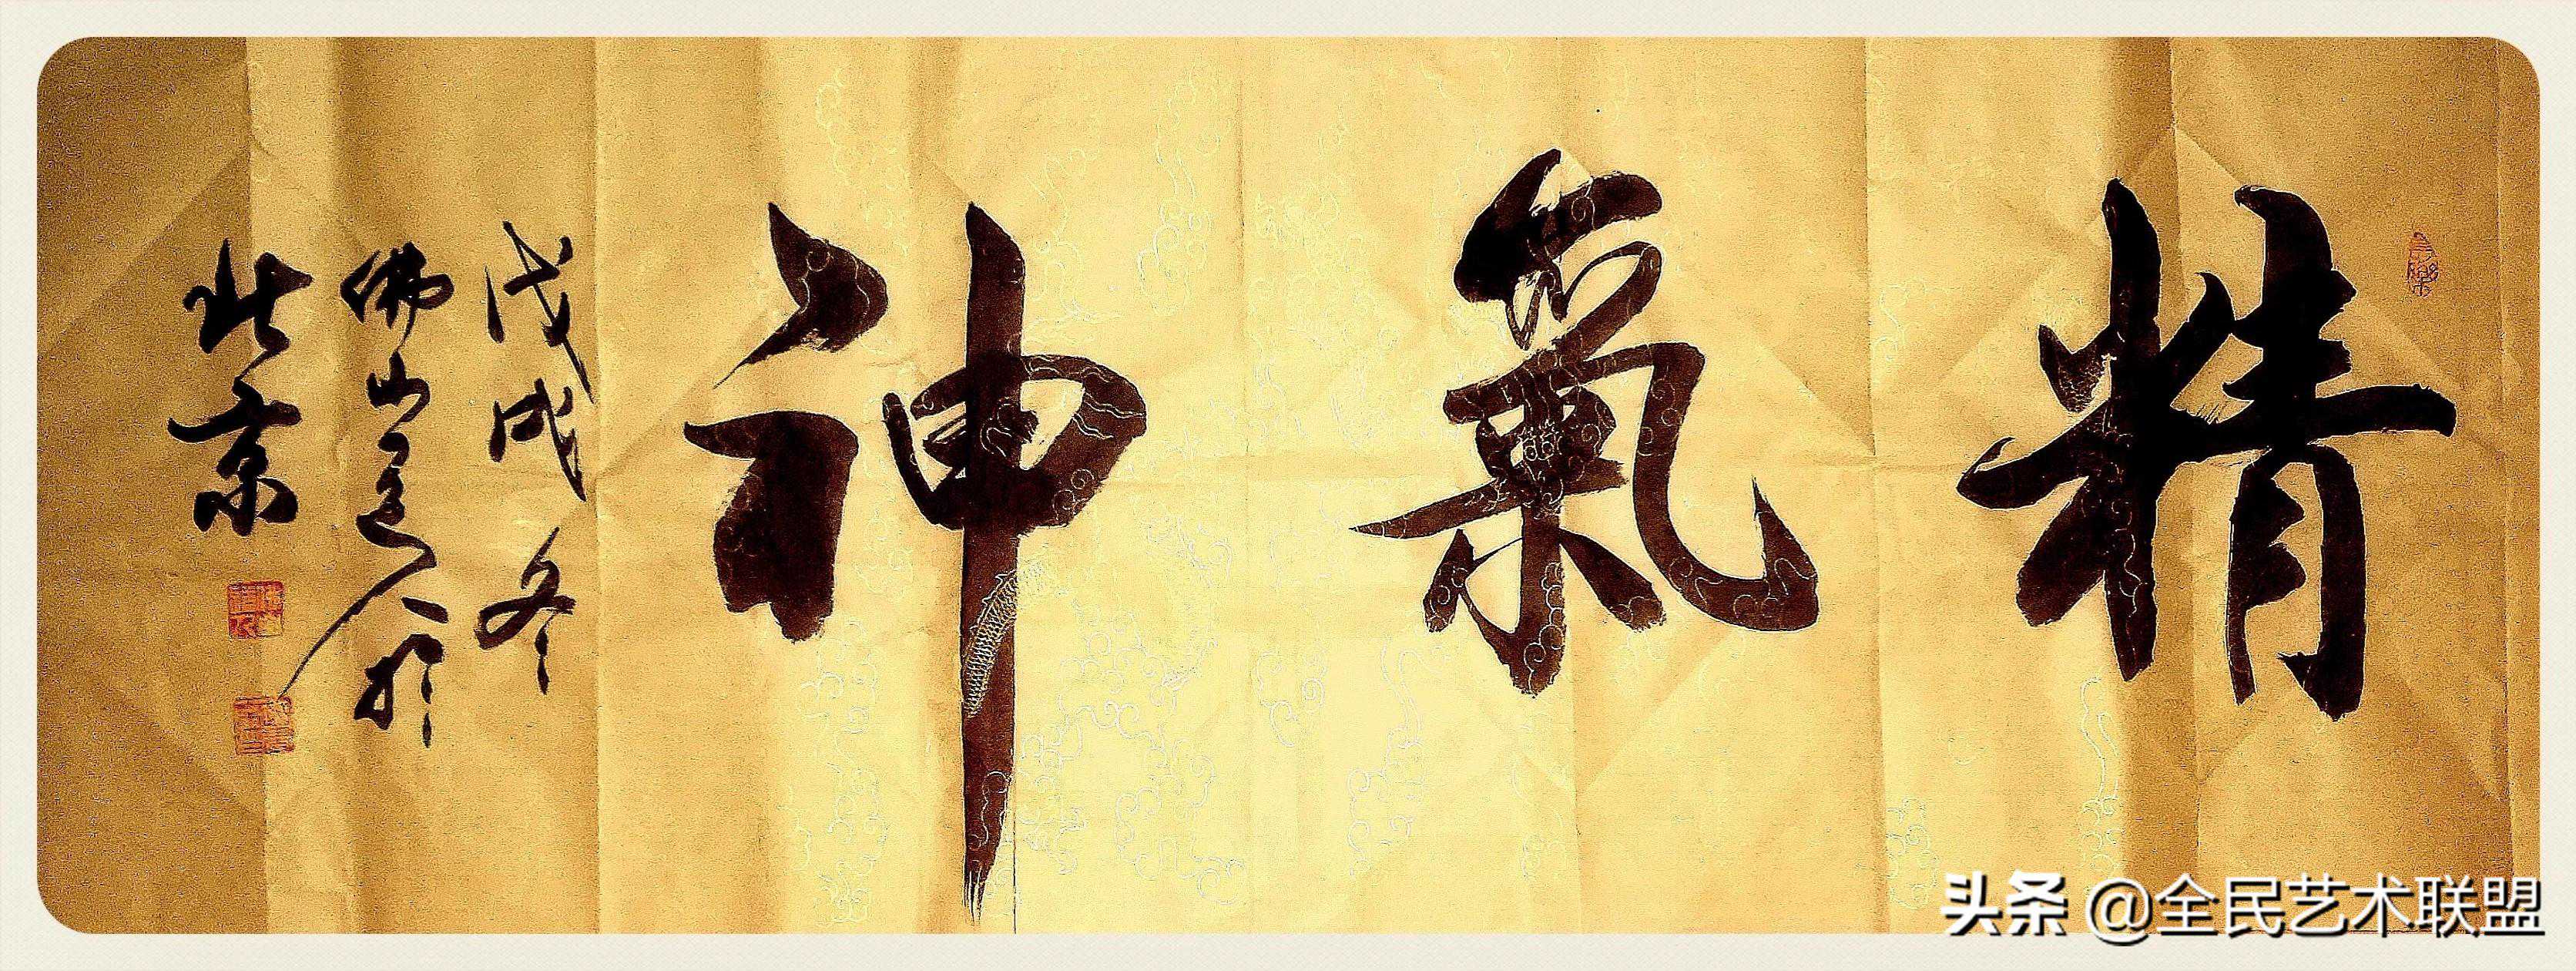 精氣神
戊戌冬
佛山道人於
北京
头条 @全民艺术联盟